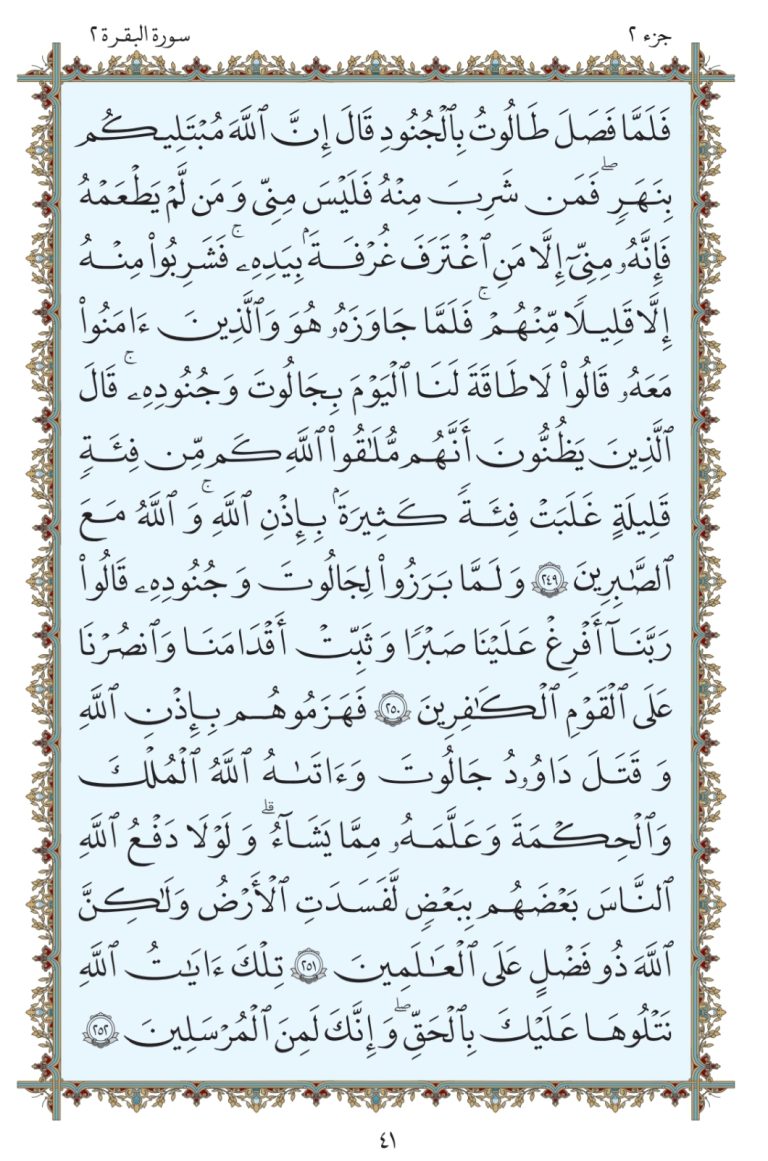 جزء ٢
سورة البقرة ٢
فَلَمَّا فَصَلَ طَالُوتُ بِٱلْجُنُودِ قَالَ إِنَّ ٱللَّهَ مُبْتَلِيكُم
بِنَهَرٍۢ ۖ فَمَن شَرِبَ مِنْهُ فَلَيْسَ مِنِّى وَمَن لَّمْ يَطْعَمْهُ
فَإِنَّهُۥ مِنِّىٓ إِلَّا مَنِ ٱغْتَرَفَ غُرْفَةًۢ بِيَدِهِۦ ۚ فَشَرِبُوا۟ مِنْهُ
إِلَّا قَلِيلًا مِّنْهُمْ ۚ فَلَمَّا جَاوَزَهُۥ هُوَ وَٱلَّذِينَ ءَامَنُوا۟
مَعَهُۥ قَالُوا۟ لَا طَاقَةَ لَنَا ٱلْيَوْمَ بِجَالُوتَ وَجُنُودِهِۦ ۚ قَالَ
ٱلَّذِينَ يَظُنُّونَ أَنَّهُم مُّلَٰقُوا۟ ٱللَّهِ كَم مِّن فِئَةٍ
قَلِيلَةٍ غَلَبَتْ فِئَةً كَثِيرَةًۢ بِإِذْنِ ٱللَّهِ ۚ وَٱللَّهُ مَعَ
ٱلصَّٰبِرِينَ ٢٤٩ وَلَمَّا بَرَزُوا۟ لِجَالُوتَ وَجُنُودِهِۦ قَالُوا۟
رَبَّنَآ أَفْرِغْ عَلَيْنَا صَبْرًا وَثَبِّتْ أَقْدَامَنَا وَٱنصُرْنَا
عَلَى ٱلْقَوْمِ ٱلْكَٰفِرِينَ ٢٥٠ فَهَزَمُوهُم بِإِذْنِ ٱللَّهِ
وَقَتَلَ دَاوُۥدُ جَالُوتَ وَءَاتَىٰهُ ٱللَّهُ ٱلْمُلْكَ
وَٱلْحِكْمَةَ وَعَلَّمَهُۥ مِمَّا يَشَآءُ ۗ وَلَوْلَا دَفْعُ ٱللَّهِ
ٱلنَّاسَ بَعْضَهُم بِبَعْضٍ لَّفَسَدَتِ ٱلْأَرْضُ وَلَٰكِنَّ
ٱللَّهَ ذُو فَضْلٍ عَلَى ٱلْعَٰلَمِينَ ٢٥١ تِلْكَ ءَايَٰتُ ٱللَّهِ
نَتْلُوهَا عَلَيْكَ بِٱلْحَقِّ ۖ وَإِنَّكَ لَمِنَ ٱلْمُرْسَلِينَ ٢٥٢
٤١